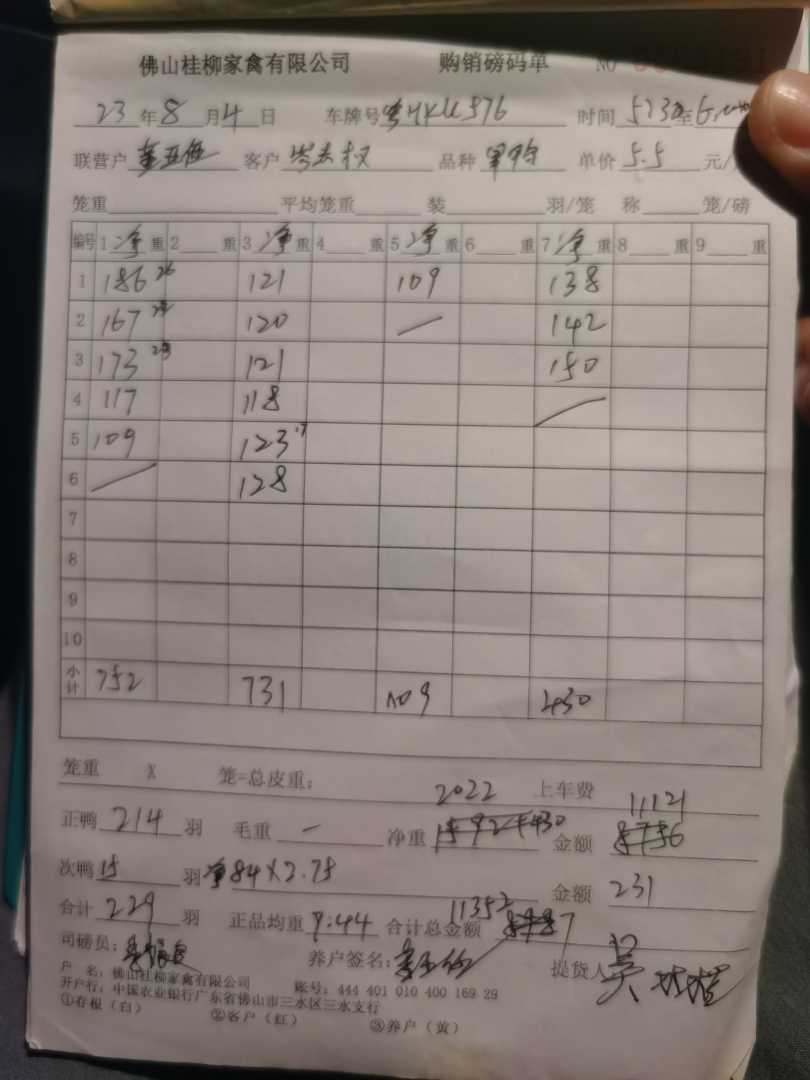 佛山桂柳家禽有限公司 购销磅码单 NO
23 年 8 月 4 日 车牌号 576 时间 5:30 至
联营户 客户 品种 单价 5.5 元/
笼重 平均笼重 装 羽/笼 称 笼/磅
编号 1 净 重 2 重 3 净 重 4 重 5 净 重 6 重 7 净 重 8 重 9 重
1 186 26 121 109 138
2 167 120 142
3 173 121 150
4 117 118
5 109 123
6 128
7
8
9
10
小计 752 731 109 430
笼重 X 笼=总皮重: 2022 上车费 11121
正鸭 214 羽 毛重 净重 1592+430 金额
次鸭 15 羽 净84×2.75 金额 231
合计 229 羽 正品均重 9.44 合计总金额 11352
司磅员: 养户签名: 提货人
户 名: 佛山桂柳家禽有限公司
开户行: 中国农业银行广东省佛山市三水区三水支行 账号: 444 401 010 400 169 29
①存根(白) ②客户(红) ③养户(黄)